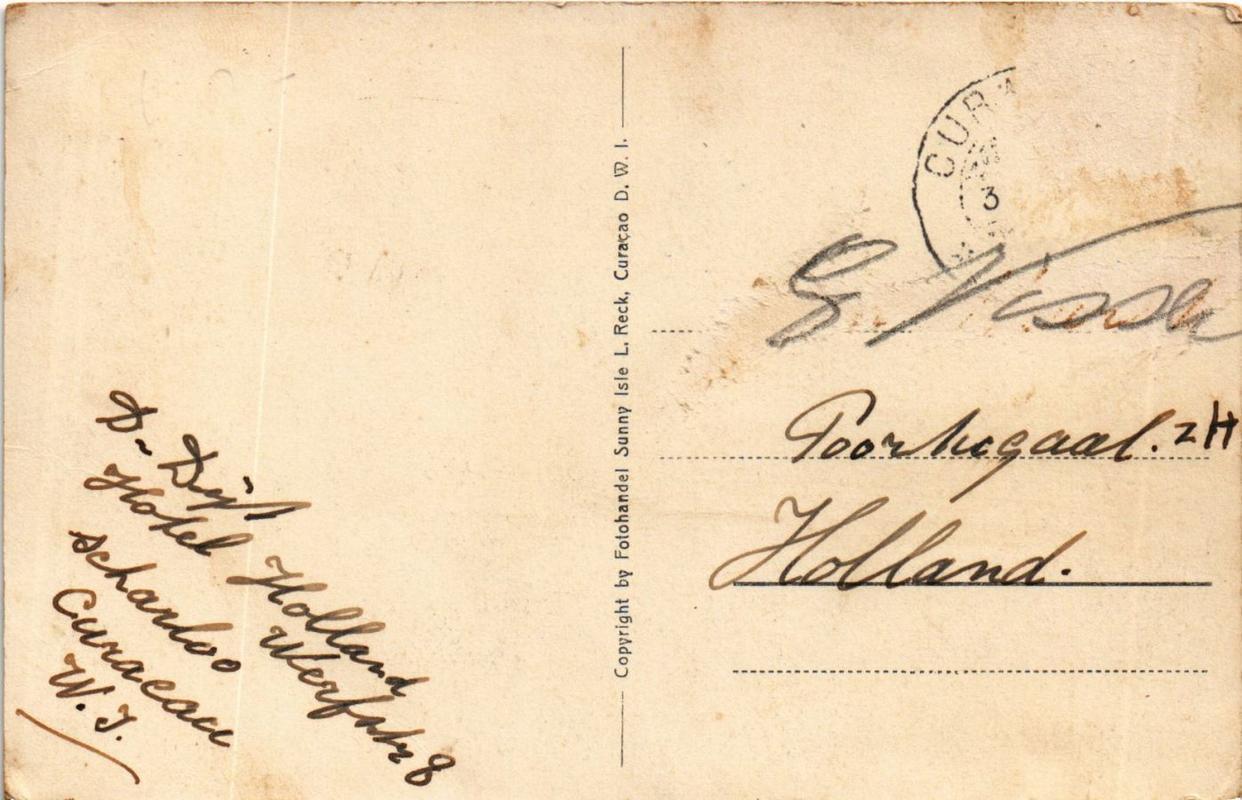 D. Dijk
Hotel Holland
Scharloo Werfstr 8
Curacau
W.I.
Copyright by Fotohandel Sunny Isle L. Reck, Curaçao D. W. I.
CURA
3
G. Visser
Poortugaal. ZH
Holland.